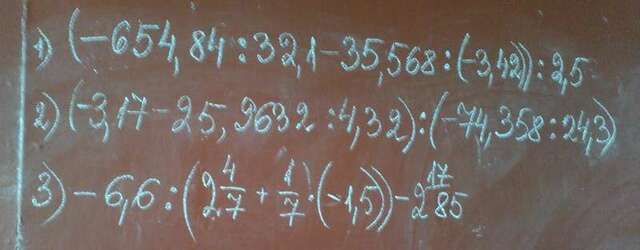 1) (-654,84 : 32,1 - 35,568 : (-3,42)) : 2,5
2) (-3,17 - 25,2632 : 4,32) : (-74,358 : 24,3)
3) -6,6 : (2 4/7 + 1/7 · (-1,5)) - 2 17/85